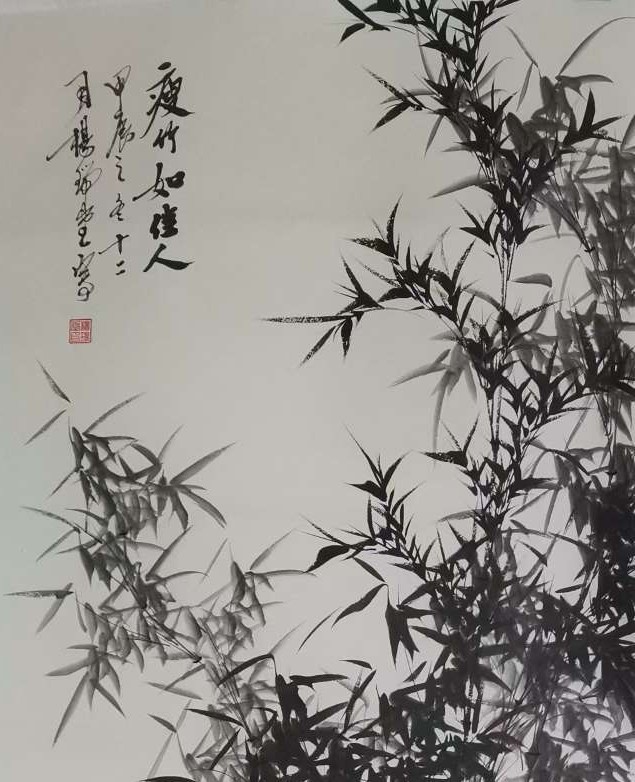 瘦竹如佳人
甲辰之冬十二
月楊瑞堂寫